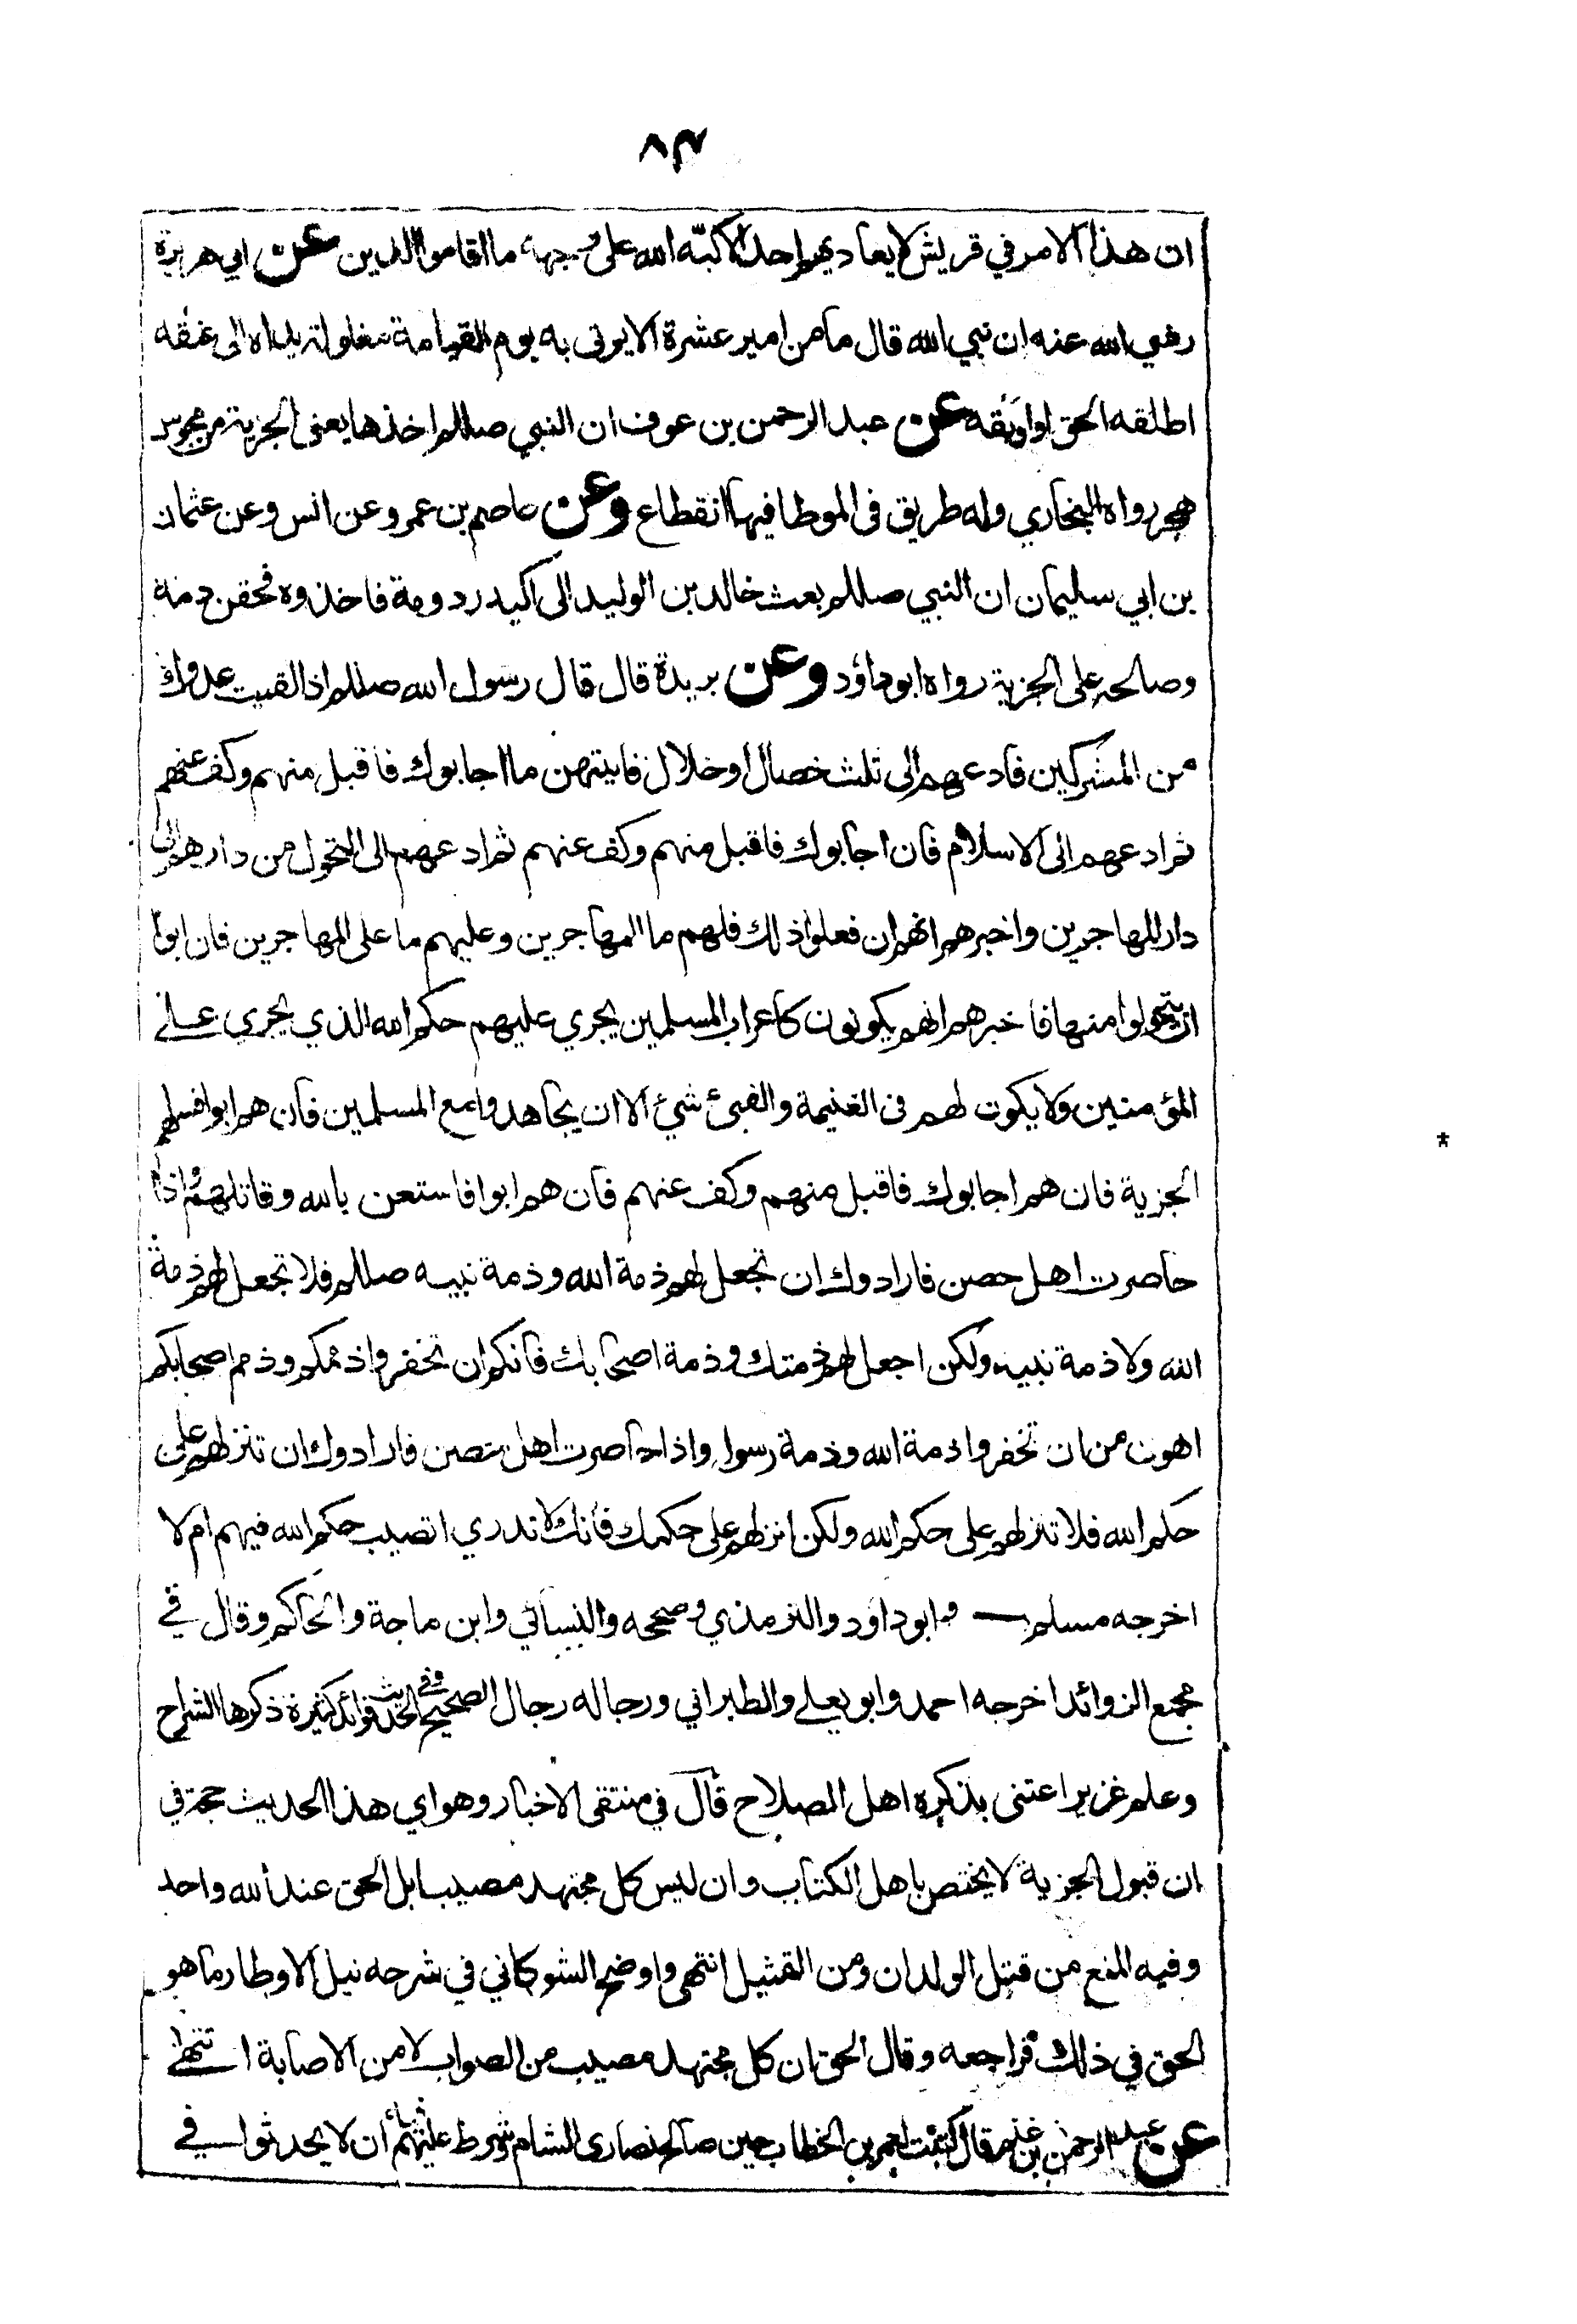 ٨٣
ان هذا الامر في قريش لا يعاديهم احد الا كبّه الله على وجهه ما اقاموا الدين عن ابي هريرة
رضي الله عنه ان نبي الله قال ما من امير عشرة الا يوتى به يوم القيامة مغلولة يداه الى عنقه
اطلقه الحق او اوبقه عن عبد الرحمن بن عوف ان النبي صللم اخذها يعنى الجزية من مجوس
هجر رواه البخاري وله طريق فى الموطا فيها انقطاع وعن عاصم بن عمر وعن انس وعن عثمان
بن ابي سليمان ان النبي صللم بعث خالد بن الوليد الى اكيدر دومة فاخذوه فحقن دمه
وصالحه على الجزية رواه ابو داؤد وعن بريدة قال قال رسول الله صللم اذا لقيت عدوك
من المشركين فادعهم الى ثلث خصال او خلال فايتهن ما اجابوك فاقبل منهم وكف عنهم
ثم ادعهم الى الاسلام فان اجابوك فاقبل منهم وكف عنهم ثم ادعهم الى التحول من دارهم الى
دار المهاجرين واخبرهم انهم ان فعلوا ذلك فلهم ما للمهاجرين وعليهم ما على المهاجرين فان ابوا
ان يتحولوا منها فاخبرهم انهم يكونون كاعراب المسلمين يجري عليهم حكم الله الذي يجري على
المؤمنين ولا يكون لهم فى الغنيمة والفيئ شيئ الا ان يجاهدوا مع المسلمين فان هم ابوا فسلهم
الجزية فان هم اجابوك فاقبل منهم وكف عنهم فان هم ابوا فاستعن بالله وقاتلهم واذا
حاصرت اهل حصن فارادوك ان تجعل لهم ذمة الله وذمة نبيه صللم فلا تجعل لهم ذمة
الله ولا ذمة نبيه ولكن اجعل لهم ذمتك وذمة اصحابك فانكم ان تخفروا ذممكم وذمم اصحابكم
اهون من ان تخفروا ذمة الله وذمة رسوله واذا حاصرت اهل حصن فارادوك ان تنزلهم على
حكم الله فلا تنزلهم على حكم الله ولكن انزلهم على حكمك فانك لا تدري اتصيب حكم الله فيهم ام لا
اخرجه مسلم وابو داؤد والترمذي وصححه والنسائي وابن ماجة والحاكم وقال في
مجمع الزوائد اخرجه احمد وابو يعلى والطبراني ورجاله رجال الصحيح وفي الحديث فوائد كثيرة ذكرها الشراح
وعلم غزير اعتنى بذكره اهل الصلاح قال في منتقى الاخبار وهو اي هذا الحديث حجة في
ان قبول الجزية لا يختص باهل الكتاب وان ليس كل مجتهد مصيبا بل الحق عند الله واحد
وفيه المنع من قتل الولدان ومن التمثيل انتهى واوضح الشوكاني في شرحه نيل الاوطار ما هو
الحق في ذلك فراجعه وقال الحق ان كل مجتهد مصيب من الصواب لا من الاصابة انتهى
عن عبد الرحمن بن غنم قال كتبت لعمر بن الخطاب حين صالح نصارى الشام وشرط عليهم ان لا يحدثوا في